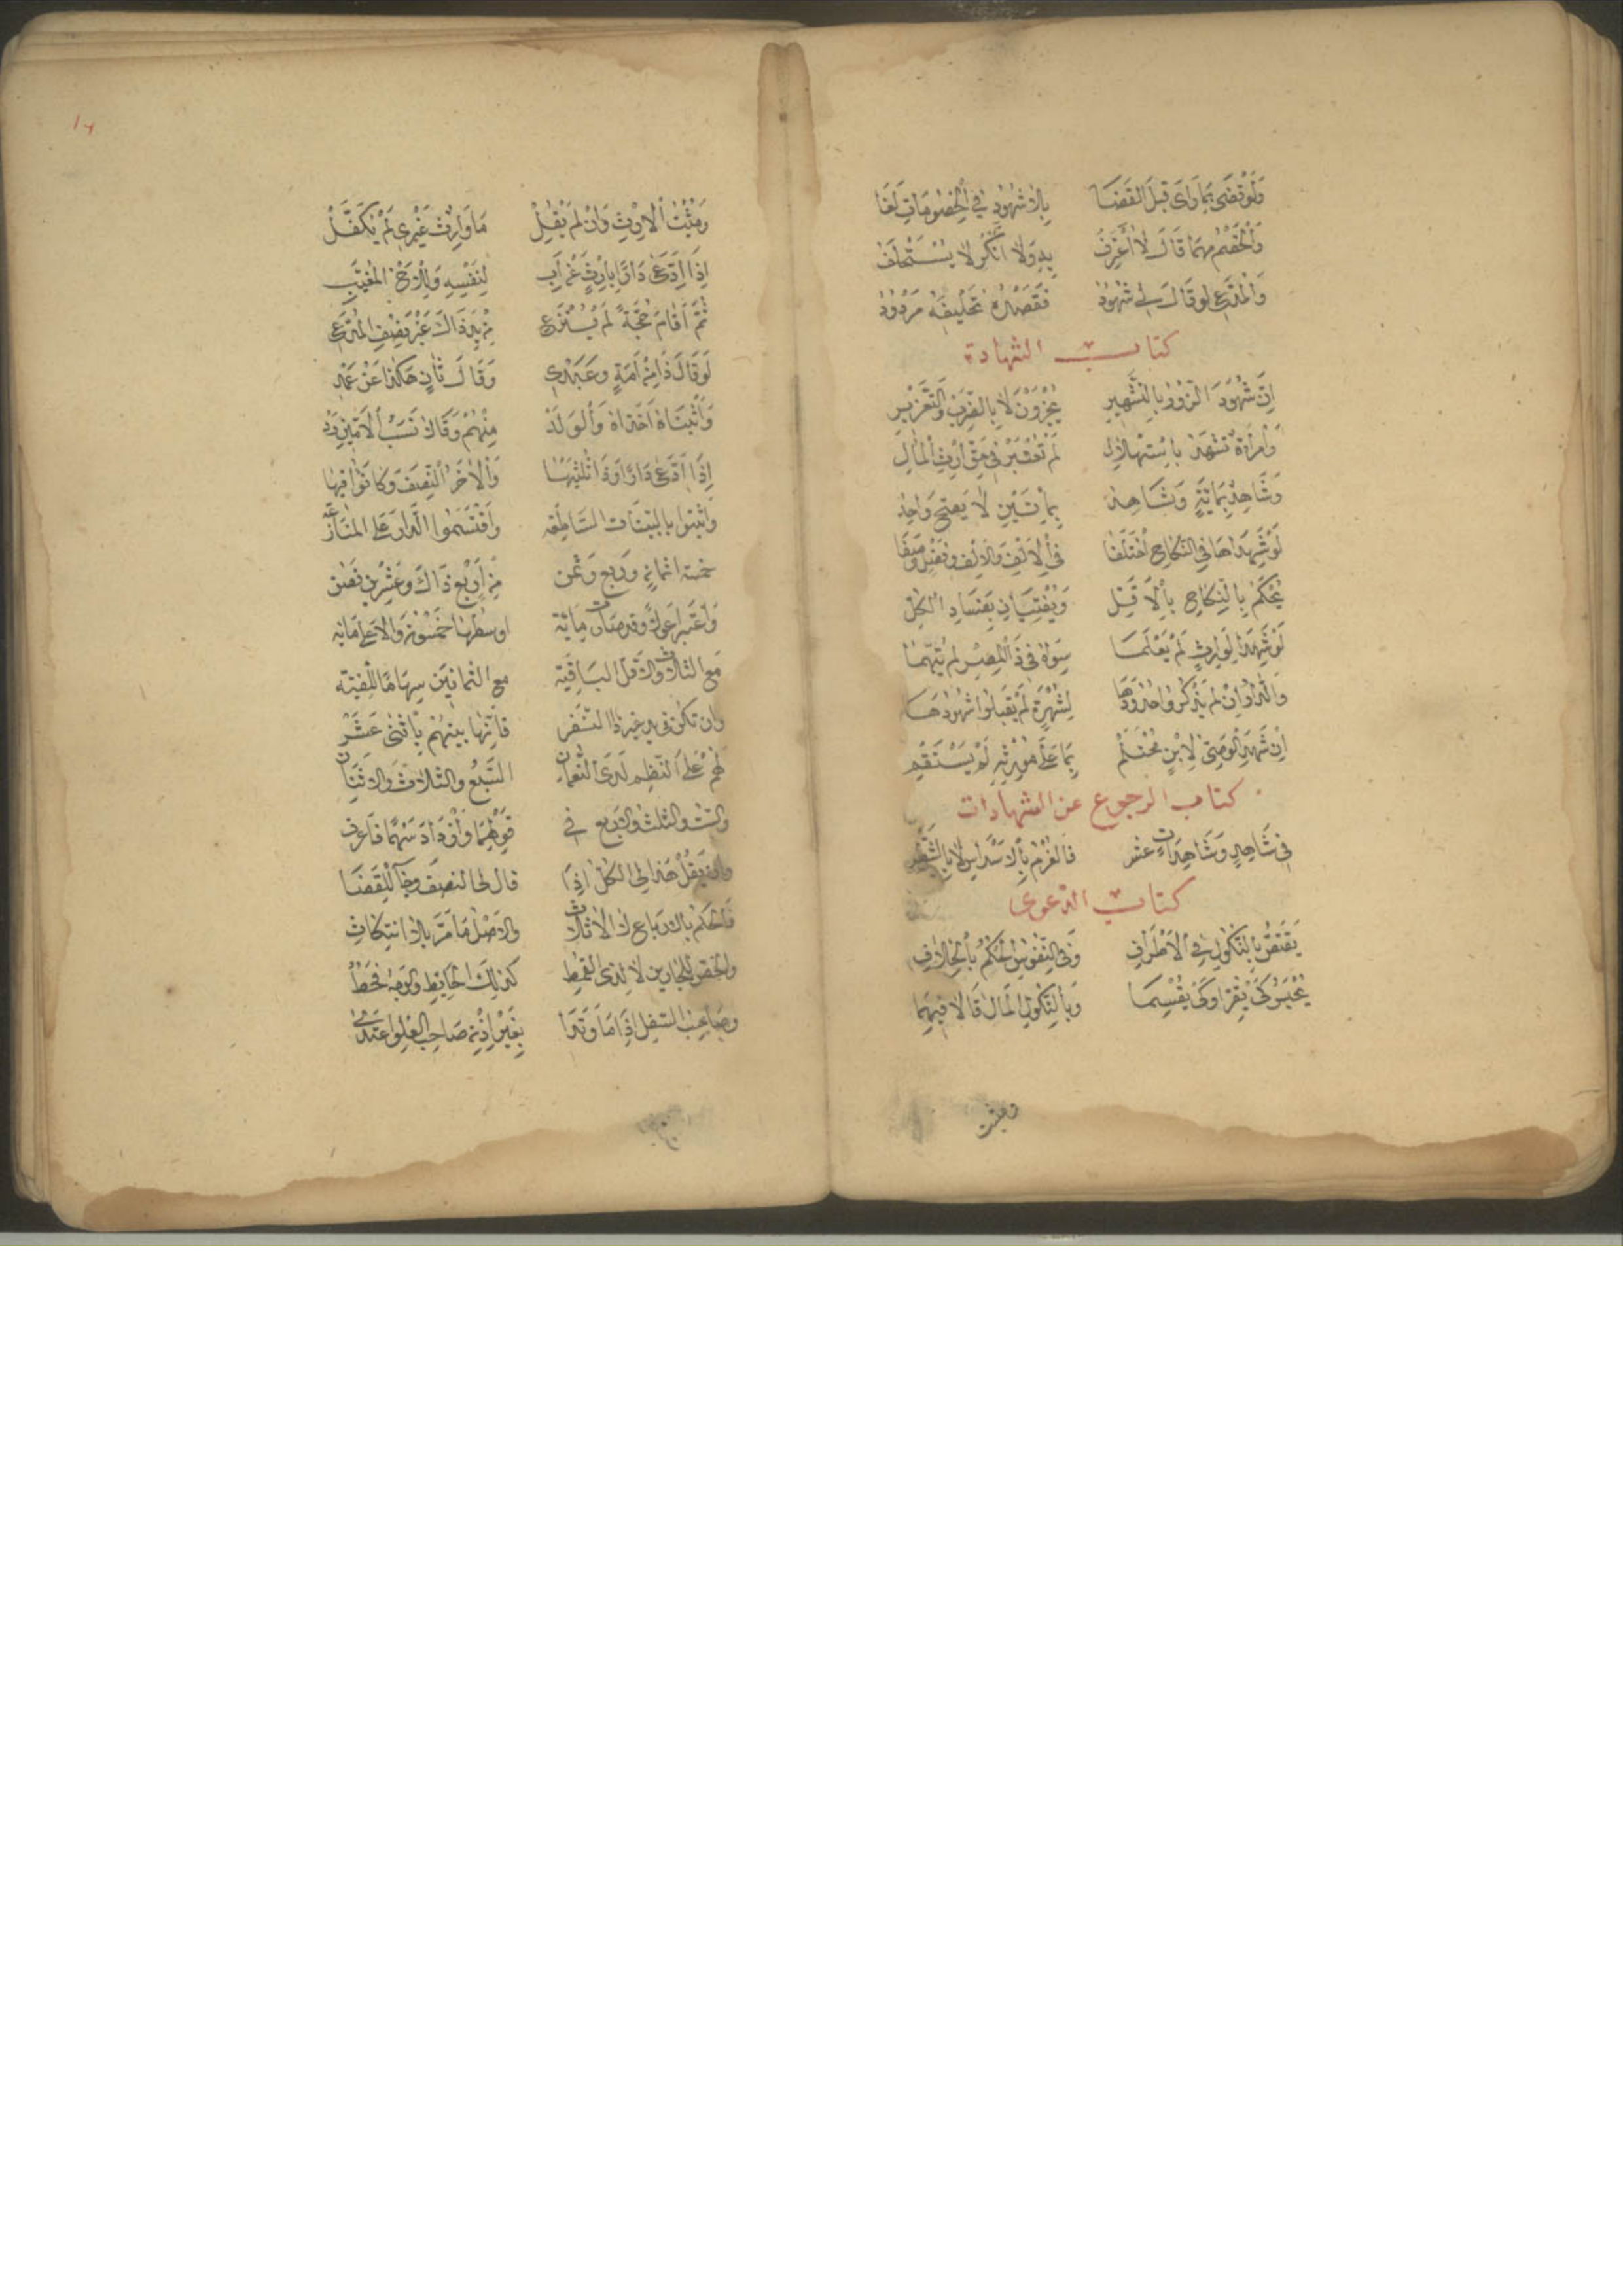 وَلَوْ قَضَى بِمَا رَأَى قَبْلَ القَضَا بِلَا شُهُودٍ فِي الْخُصُومَاتِ لَغَا
وَالْخَصْمُ مهما قَالَ لَا أَعْتَرِفُ بِهِ وَلَا أُنْكِرُ لا يُسْتَحْلَفُ
وَالْمُدَّعِي لو قَالَ لِي شُهُودُ فَقَصْدُهُ تَحْلِيفَهُ مَرْدُودُ
كتاب الشهادة
إِنَّ شُهُودَ الزُّورِ بِالتَّشْهِيرِ يُجْزَوْنَ لَا بِالضَّرْبِ وَالتَّعْزِيرِ
وَامْرَأَةٌ تَشْهَدُ بِاسْتِهْلَالِ لَمْ تُعْتَبَرْ فِي حَقِّ إِرْثِ الْمَالِ
وَشَاهِدٌ بِمِائَةٍ وَشَاهِدُ بِمِائَتَيْنِ لَا يَصِحُّ وَاحِدُ
لَوْ شَهِدَا هَا فِي النِّكَاحِ اخْتَلَفَا فِي الْأَلْفِ وَالْأَلْفِ وَنِصْفٍ وُصِفَا
يُحْكَمُ بِالنِّكَاحِ بِالْأَقَلِّ وَيُفْتِيَانِ بِفَسَادِ الْكُلِّ
لَوْ شَهِدَا لِوَارِثٍ لَمْ يَعْلَمَا سِوَاهُ فِي ذَا الْمِصْرِ لم يُتَّهَمَا
وَالدَّارُ إِنْ لَمْ يَذْكُرُوا حُدُودَهَا لِشُهْرَةٍ لَمْ يَقْبَلُوا شُهُودَهَا
إِنْ شَهِدَ الْوَصِيُّ لِابْنٍ مُحْتَلِمْ بِمَا عَلَى مُورِثِهِ لَمْ يَسْتَقِمْ
كتاب الرجوع عن الشهادات
فِي شَاهِدٍ وَشَاهِدَاتٍ عشر فَالْغُرْمُ بِالْأَسْدَاسِ لَا بِالشَّطْرِ
كتاب الدعوى
يُقْتَصُّ بِالنُّكُولِ فِي الْأَطْرَافِ وَفِي النُّفُوسِ الْحُكْمُ بِالْخِلَافِ
يُحْبَسُ كَيْ يُقِرَّ أَوْ كَيْ يُقْسِمَا وَبِالنُّكُولِ الْمَالَ قَالَا فِيهِمَا
ومثبت
وَمُثْبِتُ الْإِرْثِ وَإِنْ لَمْ يَقُلْ مَا وَارِثٌ غَيْرِي لَمْ يُكَفَّلْ
إِذَا ادَّعَى دَارًا بِإِرْثٍ عَنْ أَبِ لِنَفْسِهِ وَلِلْأَخِ الْمُغَيَّبِ
ثُمَّ أَقَامَ حُجَّةً لَمْ يُنْزَعِ مِنْ يَدِ ذَاكَ غَيْرُ نِصْفِ الْمُدَّعِي
لَوْ قَالَ ذَا مِنْ أَمَةٍ وعَبْدِي وَقَالَ ثَانٍ هَكَذَا عَنْ عَمْدِ
وَأَثْبَتَاهُ أَخَذَاهُ وَالْوَلَدْ مِنْهُمْ وَقَالَا نَسَبُ الْأُمَّيْنِ رَدْ
إِذَا ادَّعَى دَارًا وَذَا ثُلْثَيْهَا وَالْآخَرُ النِّصْفَ وَكَانُوا فِيهَا
وَأَثْبَتُوا بالبَيِّنَات السَّاطِعَه وَاقْتَسَمُوا الدَّارَ عَلَى الْمُنَازَعَه
خمسة اثمانٍ وربع وثمن مِنْ أَرْبَعٍ ذَاكَ وَعِشْرِينَ
وَاعْتَبَرَا عَوْلًا وقد صارت مِائَة اوسطها خَمْسُونَ وَالْأَعْلَى مَائَه
مع الثلاث والأقل البَاقِيَة مع الثمانين سِهَامًا لِلْفِئَة
وان تكن في يد غير ذا النفر فَإِنَّهَا بينهُمْ بِاثْنَيْ عَشَرْ
لَهُمْ عَلَى النَّظْمِ لَدَى النُّعْمَانِ السَّبْعُ والثلاث والاثنان
والست والثلث والربع في قَوْلِهِمَا وَزَادَ سَهْمًا فَاعْرِفِ
وان يقُلْ هذا لِيَ الكل اذا قال لها النصف
فَاحْكُمْ بالارباع لا الأثلاث والأصل مَا مَرَّ بلا انتكاث
والخص للجارين لا لذي القمط كذلك الْحَائِطُ وَالْوَجْهُ فَقَطْ
وصاحب السفل إذا مَا وَتَدَا بِغَيْرِ إِذْنِ صَاحِبِ العُلْوِ اعْتَدَى